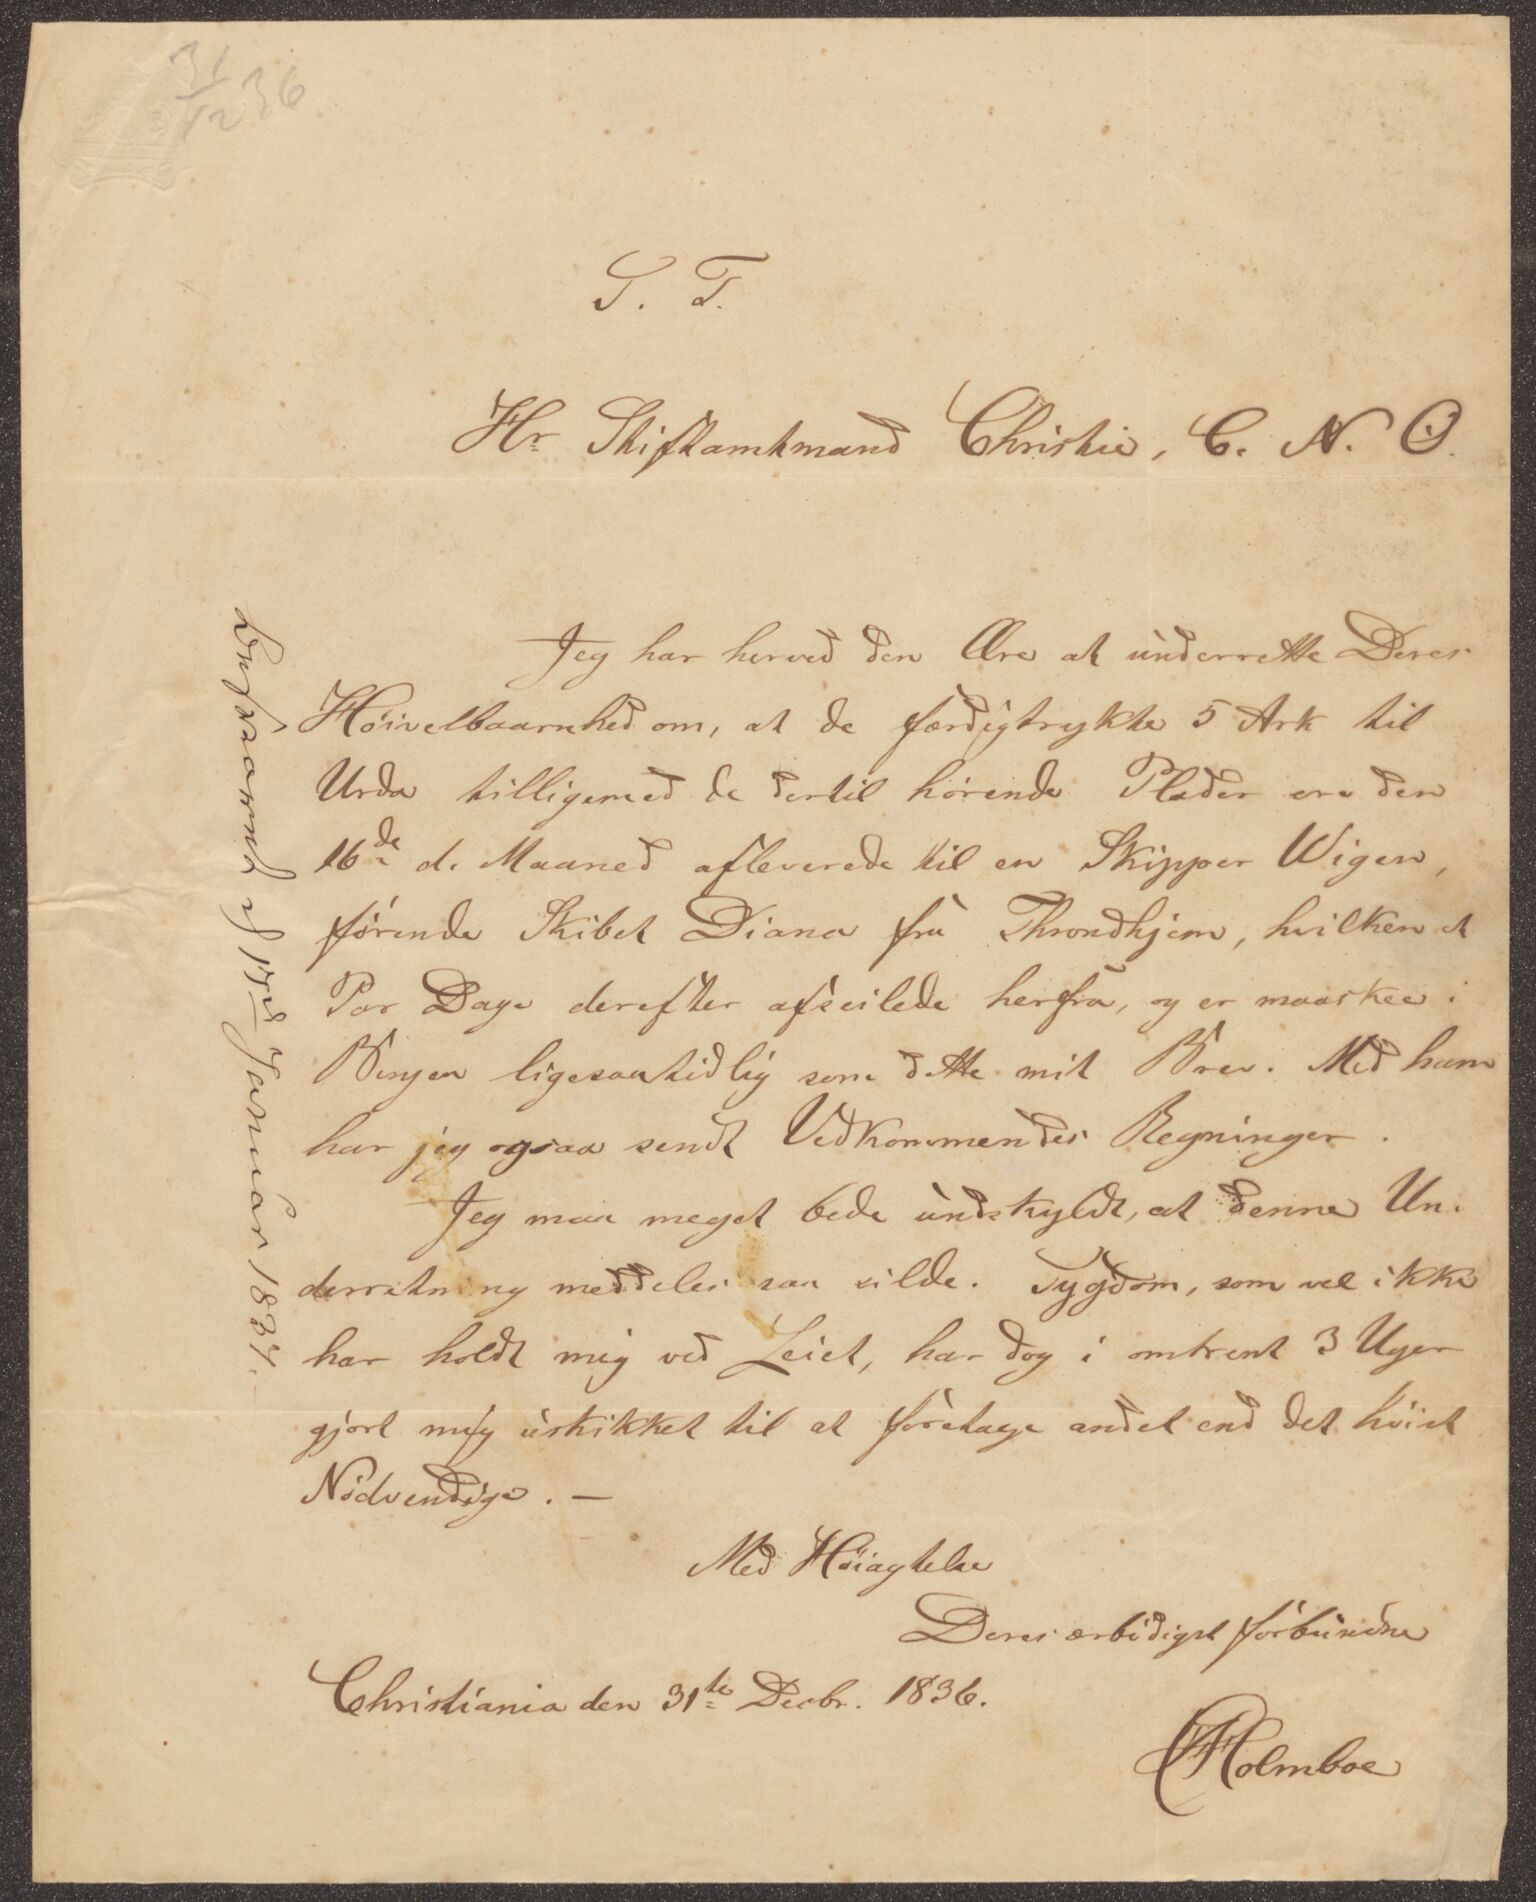 31/12 36
S. T.
Hr Stiftamtmand Christie, C. N. O.
Jeg har herved den Ære at underrette Deres
Høivelbaarenhed om, at de færdigtrykte 5 Ark til
Urda tilligemed de dertil hørende Plader ere den
16de d. Maaned afleverede til en Skipper Wigen,
førende Skibet Diana fra Throndhjem, hvilken et
Par Dage derefter afseilede herfra, og er maaskee i
Bergen ligesaatidlig som dette mit Brev. Med ham
har jeg ogsaa sendt Vedkommendes Regninger.
Jeg maa meget bede undskyldt, at denne Un-
derretning meddeles saa silde. Sygdom, som vel ikke
har holdt mig ved Leiet, har dog i omtrent 3 Uger
gjort mig uskikket til at foretage andet end det høist
Nødvendige. —
Med Høiagtelse
Deres ærbødigst forbundne
Christiania den 31te Decbr. 1836.
CHolmboe
Besvaaret d 17d Januar 1837.